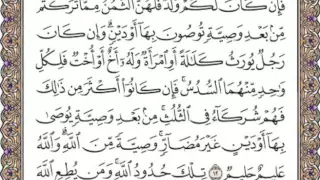 فَإِن كَانَ لَكُمْ وَلَدٌ فَلَهُنَّ ٱلثُّمُنُ مِمَّا تَرَكْتُم
مِّنۢ بَعْدِ وَصِيَّةٍ تُوصُونَ بِهَآ أَوْ دَيْنٍ ۗ وَإِن كَانَ
رَجُلٌ يُورَثُ كَلَٰلَةً أَوِ ٱمْرَأَةٌ وَلَهُۥٓ أَخٌ أَوْ أُخْتٌ فَلِكُلِّ
وَٰحِدٍ مِّنْهُمَا ٱلسُّدُسُ ۚ فَإِن كَانُوٓا۟ أَكْثَرَ مِن ذَٰلِكَ
فَهُمْ شُرَكَآءُ فِى ٱلثُّلُثِ ۚ مِنۢ بَعْدِ وَصِيَّةٍ يُوصَىٰ
بِهَآ أَوْ دَيْنٍ غَيْرَ مُضَآرٍّ ۚ وَصِيَّةً مِّنَ ٱللَّهِ ۗ وَٱللَّهُ
عَلِيمٌ حَلِيمٌ ١٢ تِلْكَ حُدُودُ ٱللَّهِ ۚ وَمَن يُطِعِ ٱللَّهَ